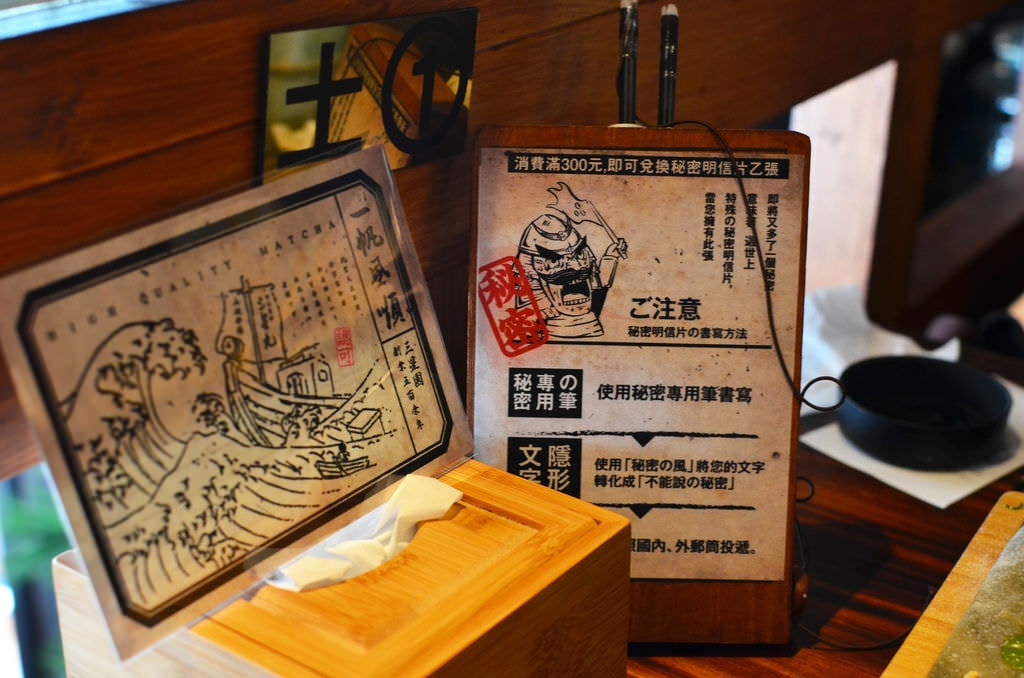 土①
HIGH QUALITY MATCHA
一帆風順
三星園
創業五百余年
認可
消費滿300元,即可兌換秘密明信片乙張
當您擁有此張
特殊の秘密明信片，
意味著 這世上
即將又多了一個秘密
秘密
ご注意
秘密明信片の書寫方法
秘密専用の筆
使用秘密專用筆書寫
隱形文字
使用「秘密の風」將您的文字
轉化成「不能說の秘密」
國內、外郵筒投遞。